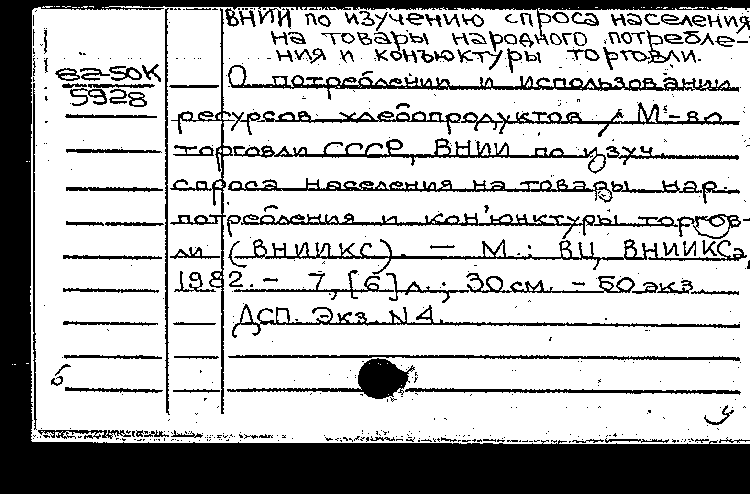 ВНИИ по изучению спроса населения
на товары народного потребле-
ния и конъюктуры торговли.
62-50К
5928
О потреблении и использовании
ресурсов хлебопродуктов / М-во
торговли СССР, ВНИИ по изуч.
спроса населения на товары нар.
потребления и кон'юнктуры торгов-
ли (ВНИИКС). — М.: ВЦ ВНИИКСа,
1982. - 7, [6] л.; 30 см. - 50 экз.
ДСП. Экз. N 4.
б
у